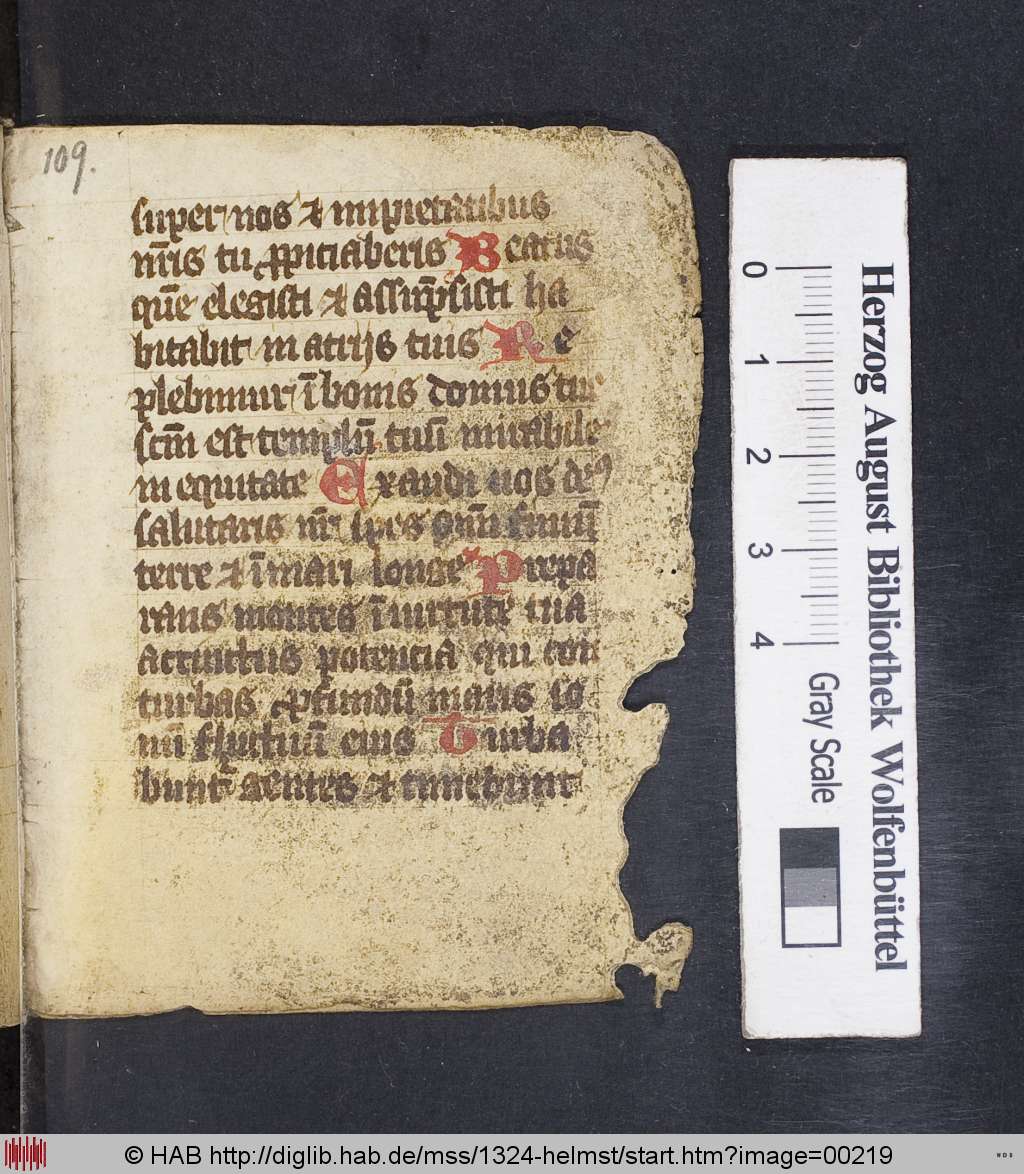 109.
super nos & impietatibus
nr̄is tu ꝓpiciaberis Beatus
quē elegisti & assūpsisti ha
bitabit in atrijs tuis Re
plebimur ī bonis domus tue
scm̄ est templū tuū mirabile
in equitate Exaudi nos deꝰ
salutaris nr̄ spes om̄ finiū
terre & ī mari longe Prepa
rans montes ī uirtute tua
accinctus potencia qui con
turbas ꝓfundū maris so
nū fluctuū eius Turba
bunt̄ gentes & timebunt
0
1
2
3
4
Gray Scale
Herzog August Bibliothek Wolfenbüttel
© HAB http://diglib.hab.de/mss/1324-helmst/start.htm?image=00219